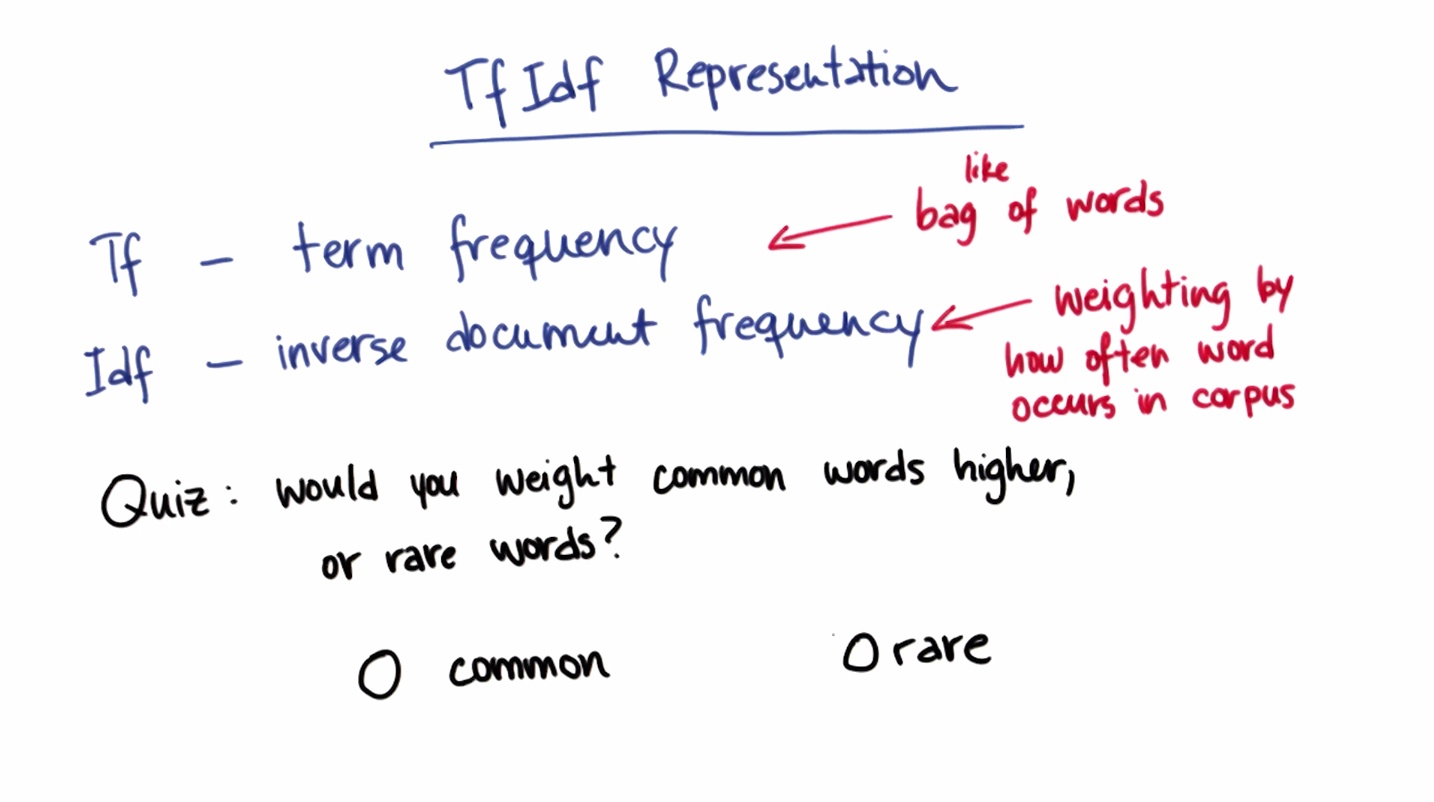 Tf Idf Representation
Tf – term frequency
like
bag of words
Idf – inverse document frequency
weighting by
how often word
occurs in corpus
Quiz: would you weight common words higher,
or rare words?
O common
O rare